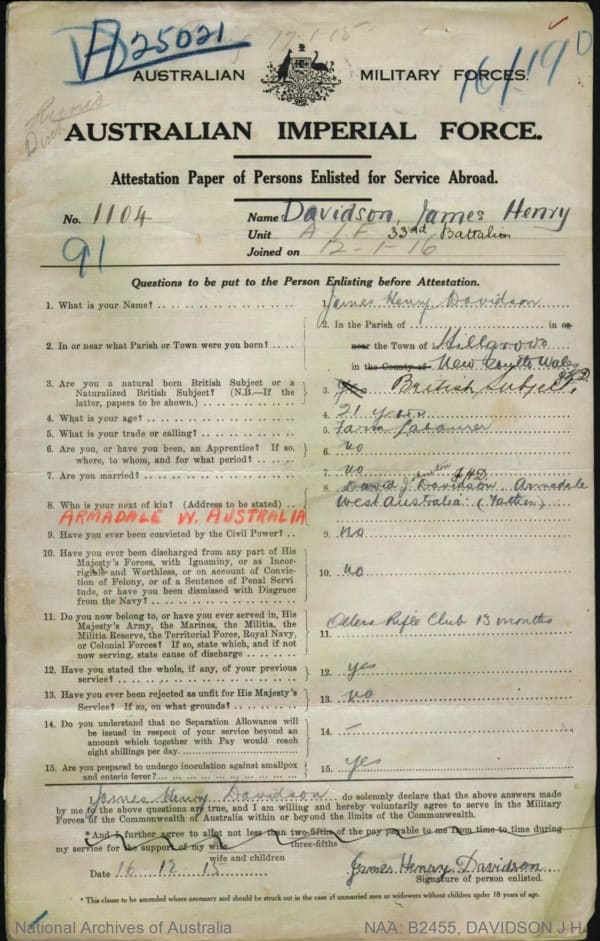 A 25021
17-1-15
AUSTRALIAN MILITARY FORCES.
AUSTRALIAN IMPERIAL FORCE.
Attestation Paper of Persons Enlisted for Service Abroad.
No. 1104 Name Davidson, James Henry
Unit A I F 33rd Battalion
91 Joined on 12-1-16
Questions to be put to the Person Enlisting before Attestation.
1. What is your Name? 1. James Henry Davidson
2. In or near what Parish or Town were you born? 2. In the Parish of in or
near the Town of Hillgrove
in the County of New South Wales
3. Are you a natural born British Subject or a 3. Yes British Subject. J.H.D.
Naturalized British Subject? (N.B.—If the
latter, papers to be shown.)
4. What is your age? 4. 21 years
5. What is your trade or calling? 5. Farm Labourer
6. Are you, or have you been, an Apprentice? If so, 6. no
where, to whom, and for what period?
7. Are you married? 7. no
8. Who is your next of kin? (Address to be stated) 8. David J. Davidson Armadale J.H.D.
West Australia (Father)
ARMADALE W. AUSTRALIA
9. Have you ever been convicted by the Civil Power? 9. no
10. Have you ever been discharged from any part of His
Majesty's Forces, with Ignominy, or as Incor-
rigible and Worthless, or on account of Convic-
tion of Felony, or of a Sentence of Penal Servi
tude, or have you been Dismissed with Disgrace
from the Navy? 10. no
11. Do you now belong to, or have you ever served in, His
Majesty's Army, the Marines, the Militia, the
Militia Reserve, the Territorial Force, Royal Navy,
or Colonial Forces? If so, state which, and if not
now serving, state cause of discharge 11. Rifle Club 13 months
12. Have you stated the whole, if any, of your previous
service? 12. yes
13. Have you ever been rejected as unfit for His Majesty's
Service? If so, on what grounds? 13. no
14. Do you understand that no Separation Allowance will
be issued in respect of your service beyond an
amount which together with Pay would reach
eight shillings per day. 14. —
15. Are you prepared to undergo inoculation against smallpox
and enteric fever? 15. yes
I, James Henry Davidson do solemnly declare that the above answers made
by me to the above questions are true, and I am willing and hereby voluntarily agree to serve in the Military
Forces of the Commonwealth of Australia within or beyond the limits of the Commonwealth.
*And I further agree to allot not less than two-fifths of the pay payable to me from time to time during
three-fifths
my service for the support of my wife
wife and children
Date 16 12 15 James Henry Davidson
Signature of person enlisted.
* This clause to be amended where necessary and should be struck out in the case of unmarried men or widowers without children under 18 years of age.
National Archives of Australia NAA: B2455, DAVIDSON J H